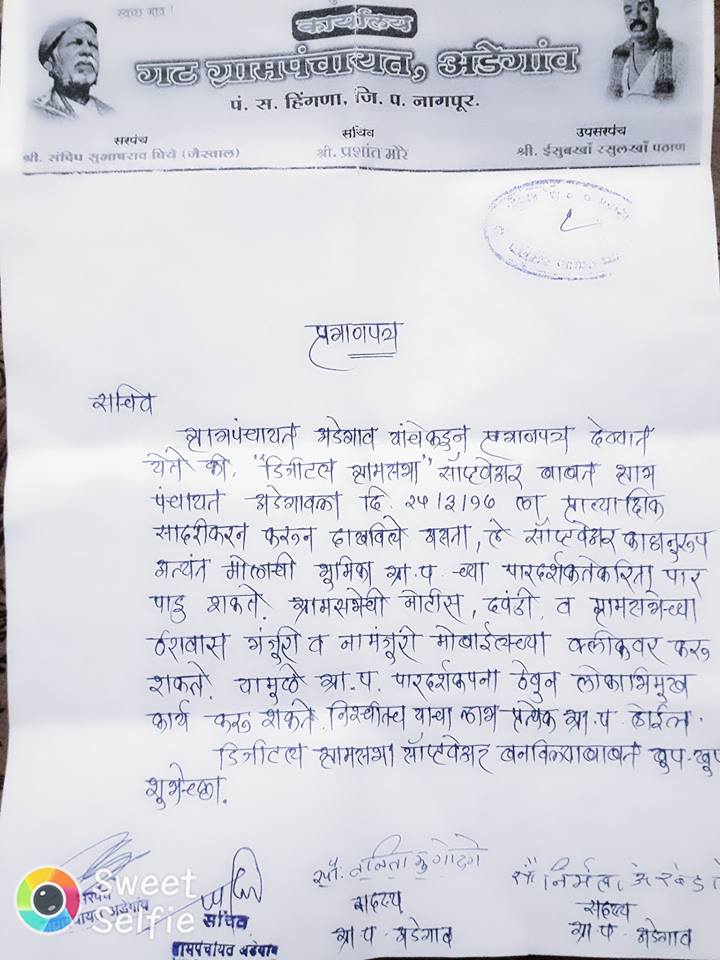 स्वच्छ गाव !
कार्यालय
गट ग्रामपंचायत, अडेगांव
पं. स. हिंगणा, जि. प. नागपूर.
सरपंच
सचिव
उपसरपंच
श्री. संदिप सुभाषराव (जैस्वाल)
श्री. प्रशांत मोरे
श्री. ईसुबखाँ रसुलखाँ पठाण
प्रमाणपत्र
सचिव
ग्रामपंचायत अडेगाव यांचेकडुन प्रमानपत्र देण्यात
येते की, "डिजीटल ग्रामसभा" सॉफ्टवेअर बाबत ग्राम
पंचायत अडेगावला दि. २५/३/१७ ला प्रात्याक्षिक
सादरीकरन करून दाखविले असता, ते सॉफ्टवेअर काळानुरूप
अत्यंत मोलाची भूमिका ग्रा.प. च्या पारदर्शकतेकरिता पार
पाडु शकते. ग्रामसभेची नोटीस, दवंडी, व ग्रामसभेच्या
ठरावास मंजूरी व नामंजूरी मोबाईलच्या क्लीकवर करू
शकते. यामुळे ग्रा.प. पारदर्शकपना ठेवुन लोकाभिमुख
कार्य करू शकते. निश्चीतच याचा लाभ प्रत्येक ग्रा.प होईल.
डिजीटल ग्रामसभा सॉफ्टवेअर बनविल्याबाबत खुप-खुप
शुभेच्छा.
सौ. ललिता
सौ निर्मला
सरपंच
सदस्य
सदस्य
ग्रामपंचायत अडेगांव
सचिव
ग्रा.प. अडेगाव
ग्रा.प. अडेगाव
ग्रामपंचायत अडेगाव
Sweet
Selfie